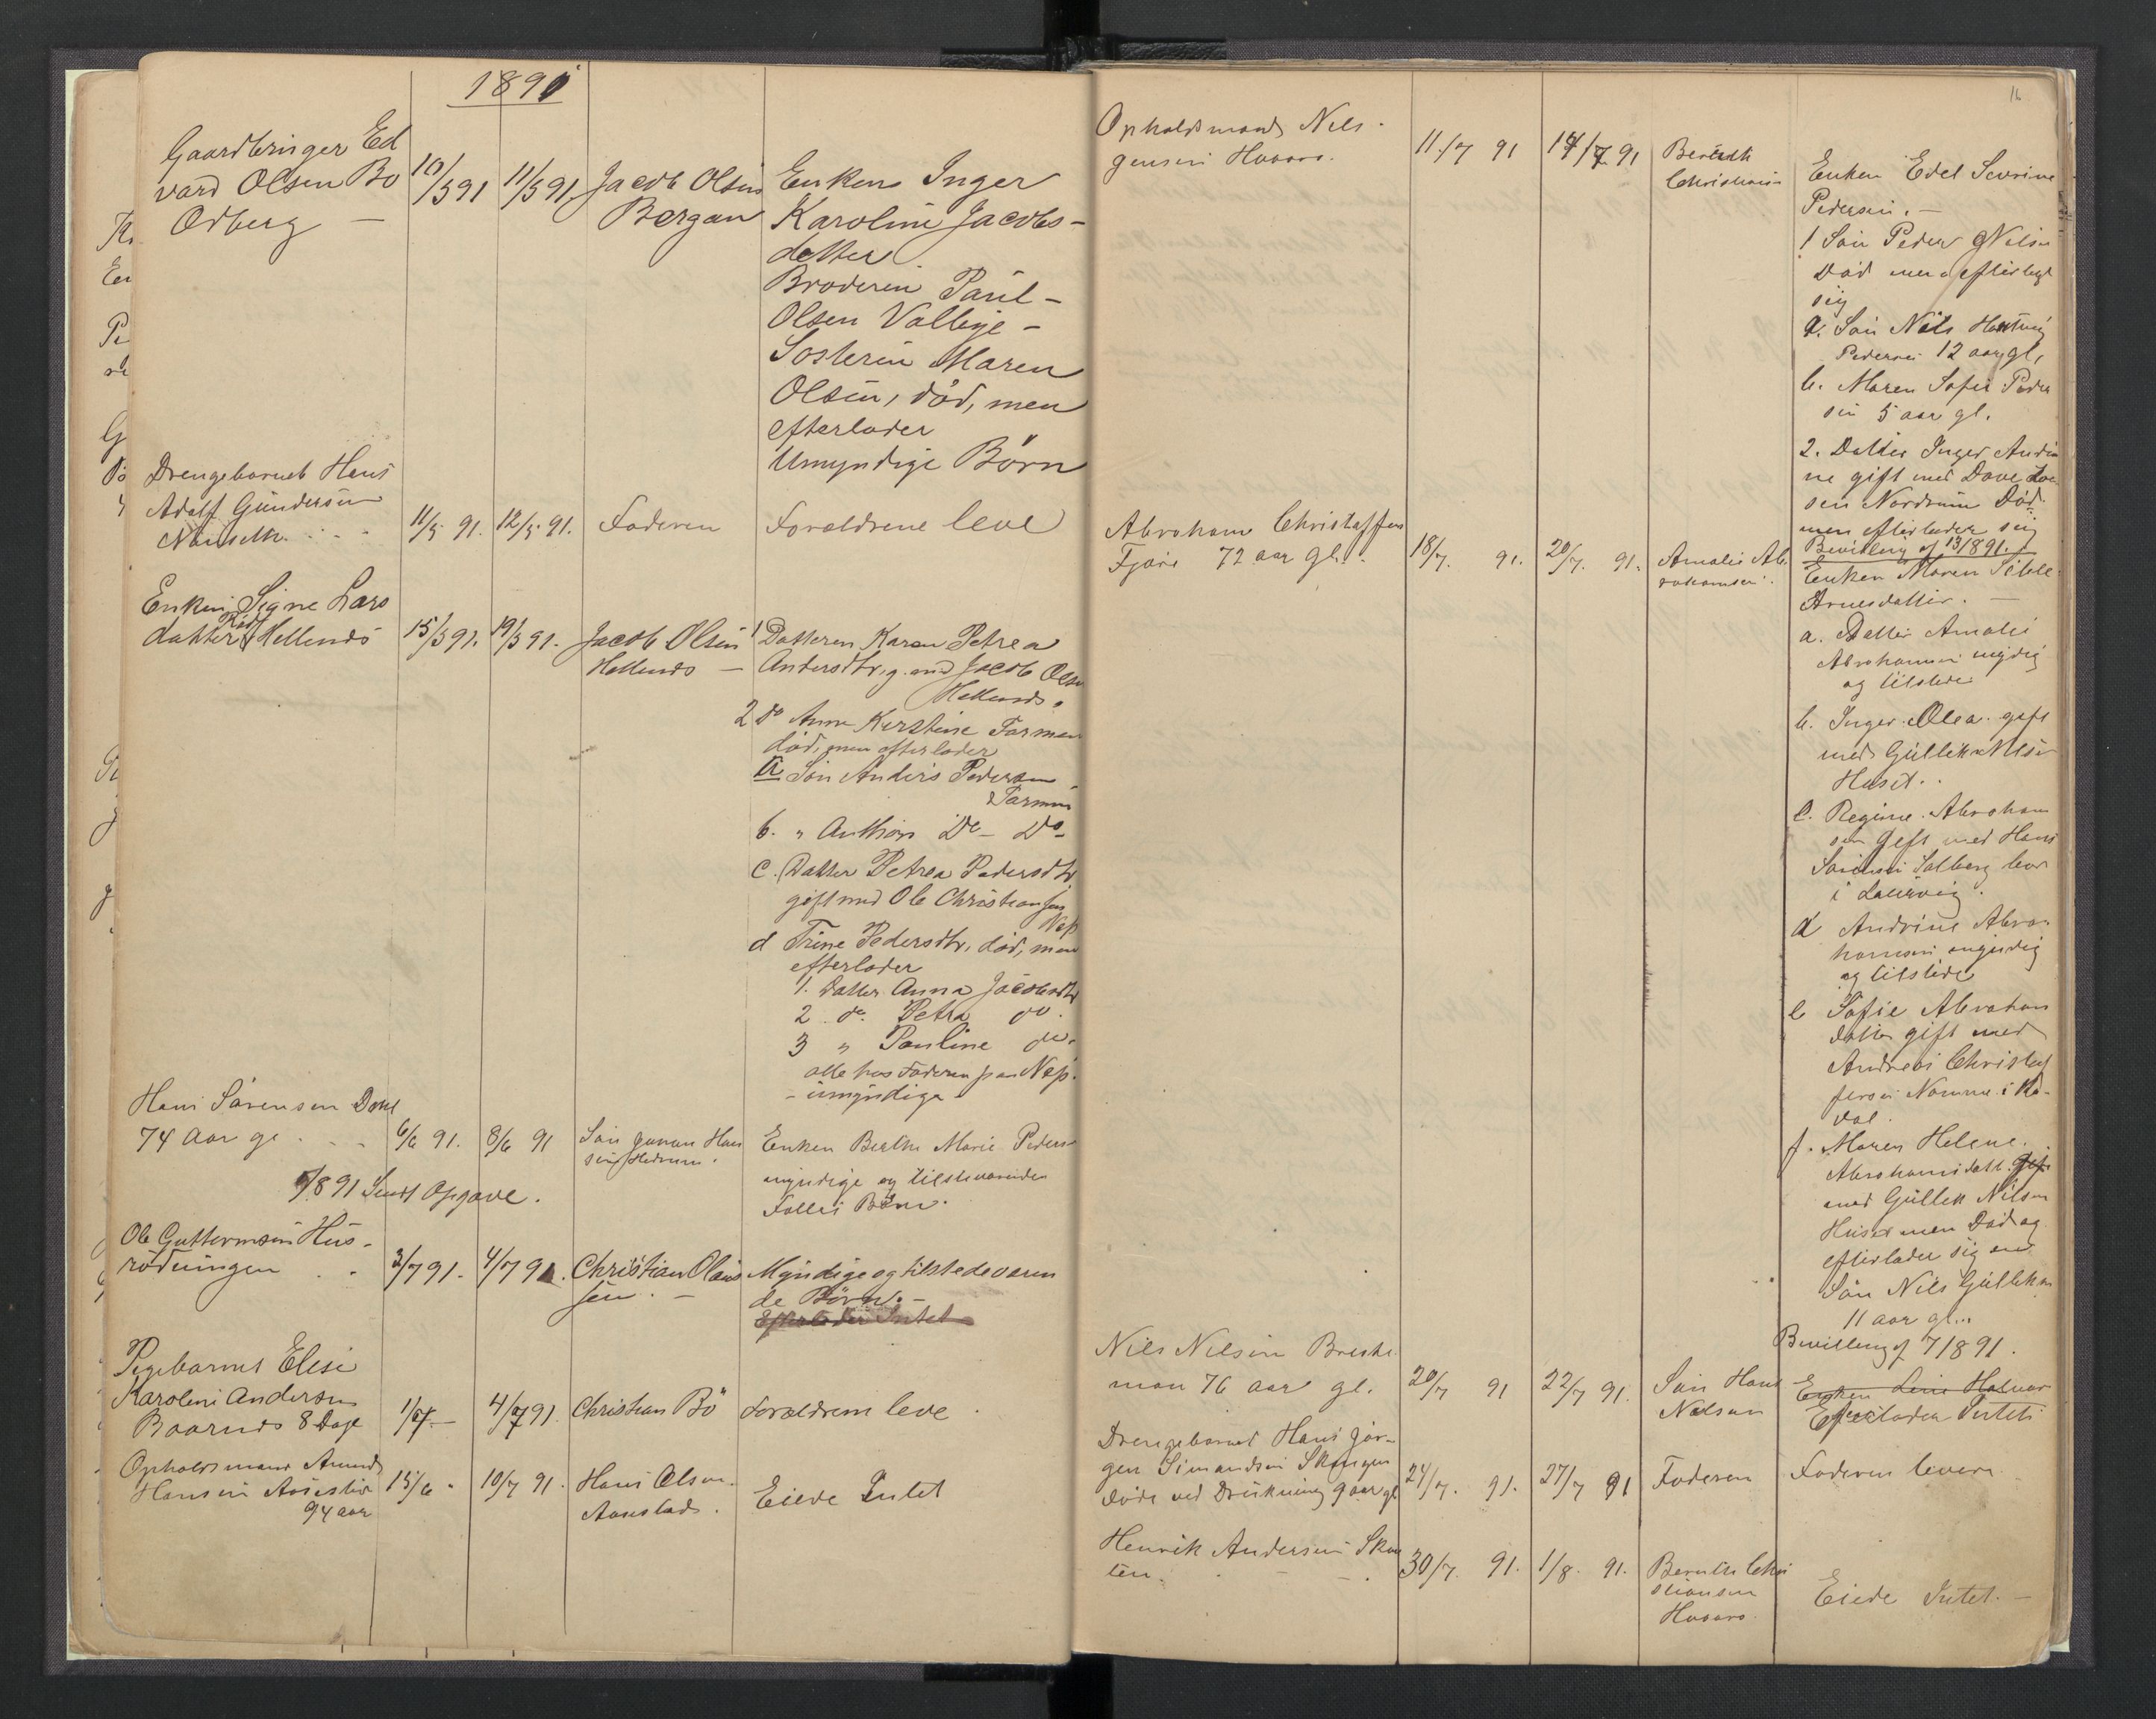 1891
Gaardbruger Ed
vard Olsen Bö
Odberg —
10/5 91
11/5 91.
Jacob Olsen
Bergan
Enken Inger
Karoline Jacobs-
datter
Broderen Paul -
Olsen Valleye -
Sosteren Maren
Olsen, död, men
efterlader
Umyndige Börn
Drengebarnet Hans
Adolf Gundersen
11/5 91.
12/5 91.
Faderen
Foraldrene leve
Enken Signe Lars
datter Hellends
15/5 91.
19/5 91.
Jacob Olsen
Hellends —
1 Datteren Karen Petrea
Andersdtr, g. med Jacob Olsen
Hellends.
2 do Anne Kirstine Farmen
död, men efterlader
a Sön Anders Pedersen
Farmen
b. " Anthon do - do -
c. Datter Petrea Pedersdtr
gift med Ole Christiansen
Nes
d Trine Pedersdtr, död, men
efterlader
1. Datter Anna Jacobsdtr
2 do. Petra do.
3 " Pauline do.
alle hos Faderen paa Nes.
- umyndige -
Hans Sörensen Dahl
74 aar gl . . -
6/6 91.
8/6 91
Sön Hans
sen Hedrum.
Enken Berthe Marie Peders
myndige og tilstevarende
Falles Börn.
/8 91 Sendt Opgave.
Ole Guttormsen Hus-
rödningen . .
3/7 91.
4/7 91.
Christian Olaus
sen. —
Myndige og tilstedevaren
de Börn. -
Efterlader Intet
Pigebarnet Elise
Karoline Andersen
Baarnes 8 Dage
1/7 —
4/7 91
Christian Bö
Foraldrene leve
Opholdsmand Amund
Hansen
94 aar
15/6 -
10/7 91.
Hans Olsen
Aarstad.
Eiede Intet
16
Opholdsmand Nils
gensen Hvaara.
11/7 91
14/7 91
Berndt
Christians
Enken Edel Sevrine
Pedersen. -
1 Sön Peder Nilsen
Död men efterlagt
sig
a. Sön Nils Hartvig
Pedersen 12 aar gl,
b. Maren Sofie Peder
sen 5 aar gl.
2. Datter Inger Andri
ne gift med
sen Nordrum Död
men efterlader sig
Bevilling af 13/8 91.
Abraham Christoffers
Fjære 72 aar gl. .
18/7. 91.
20/7. 91.
Amalie Ab.
rahamsen.
Enken Maren Sibille
Arnesdatter. —
a. Datter Amalie
Abrahamsen myndig
og tilstede
b. Inger Olea. gift
med Gullik Nilsen
Huset. .
c. Regine Abraham
sen Gift med Hans
Sörensen Solberg bor
i Laurvig.
d Andrine Abra-
hamsen myndig
og tilstede
e Sofie Abraham
datter gift med
Andreas Christof
fersen Nomme i Ko-
dal.
f. Maren Helene.
Abrahamsdatt. gift
med Gullik Nilsen
Huset men Död og
efterlader sig en
Sön Nils Gulliksen
11 aar gl...
Bevilling af 7/8 91.
Nils Nilsen Breske
moen 76 aar gl.
20/7 91
22/7 91.
Sön Hans
Nilsen
Enken Lene Halvor
Efterlader Intet
Drengebarnet Hans Jör-
gen Simandsen
Döde ved Drukning 9 aar gl
24/7. 91.
27/7 91
Faderen
Faderen lever.
Henrik Andersen Skau
ten. - - .
30/7. 91.
1/8. 91.
Berndt Chri
stiansen
Hvaara.
Eiede Intet. —